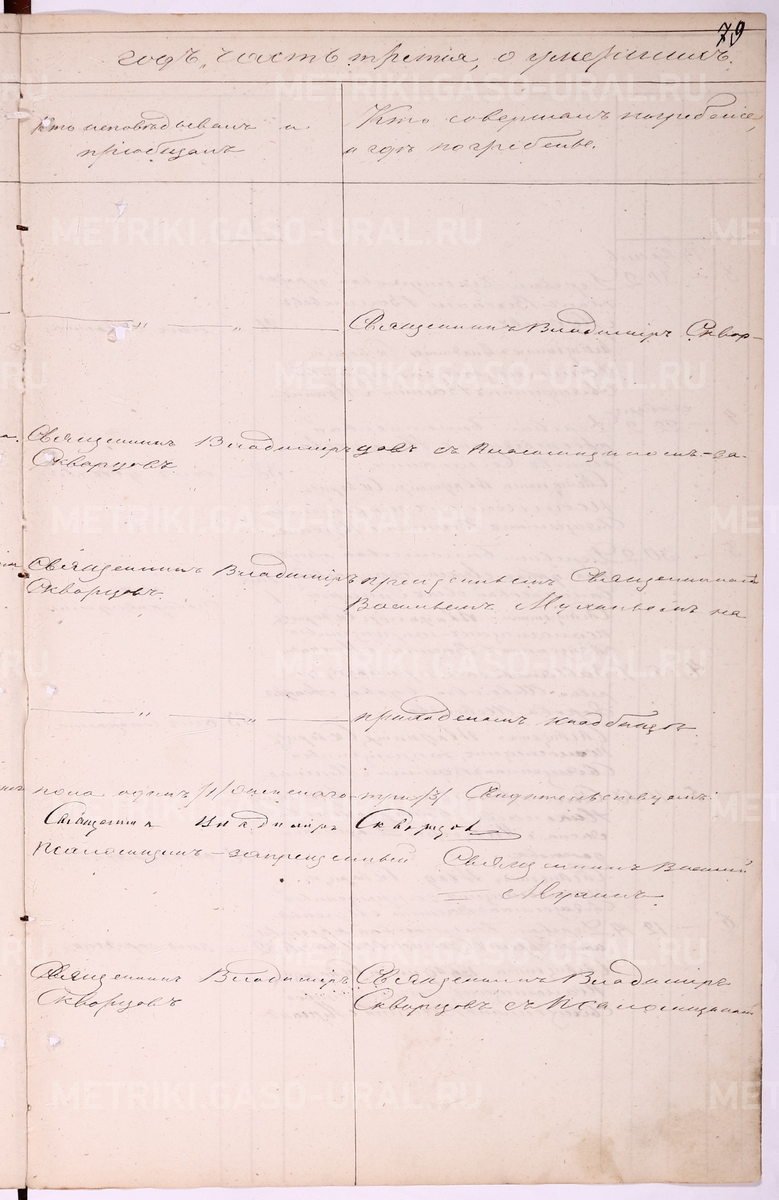 79
годъ, часть третія, о умершихъ.
Кто исповѣдывалъ и
пріобщалъ
Кто совершалъ погребеніе,
и гдѣ погребены.
— „ — „ —
Священникъ Владиміръ Сквор-
Священникъ Владиміръ
Скворцовъ.
цовъ съ Псаломщикомъ-за-
Священникъ Владиміръ
Скворцовъ.
прещеннымъ Священникомъ
Василіемъ на
— „ — „ —
приходскомъ кладбищѣ
пола одинъ /1/ женскаго три /3/ Свидѣтельствуемъ:
Священникъ Владиміръ Скворцовъ
Псаломщикъ-запрещенный Священникъ Василій
Священникъ Владиміръ
Скворцовъ
Священникъ Владиміръ
Скворцовъ съ Псаломщикомъ
METRIKI.GASO-URAL.RU